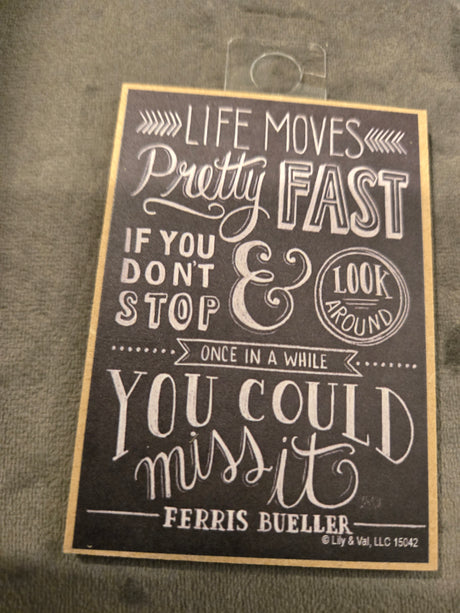 LIFE MOVES
Pretty FAST
IF YOU
DON'T
STOP
&
LOOK
AROUND
ONCE IN A WHILE
YOU COULD
miss it
FERRIS BUELLER
© Lily & Val, LLC 15042